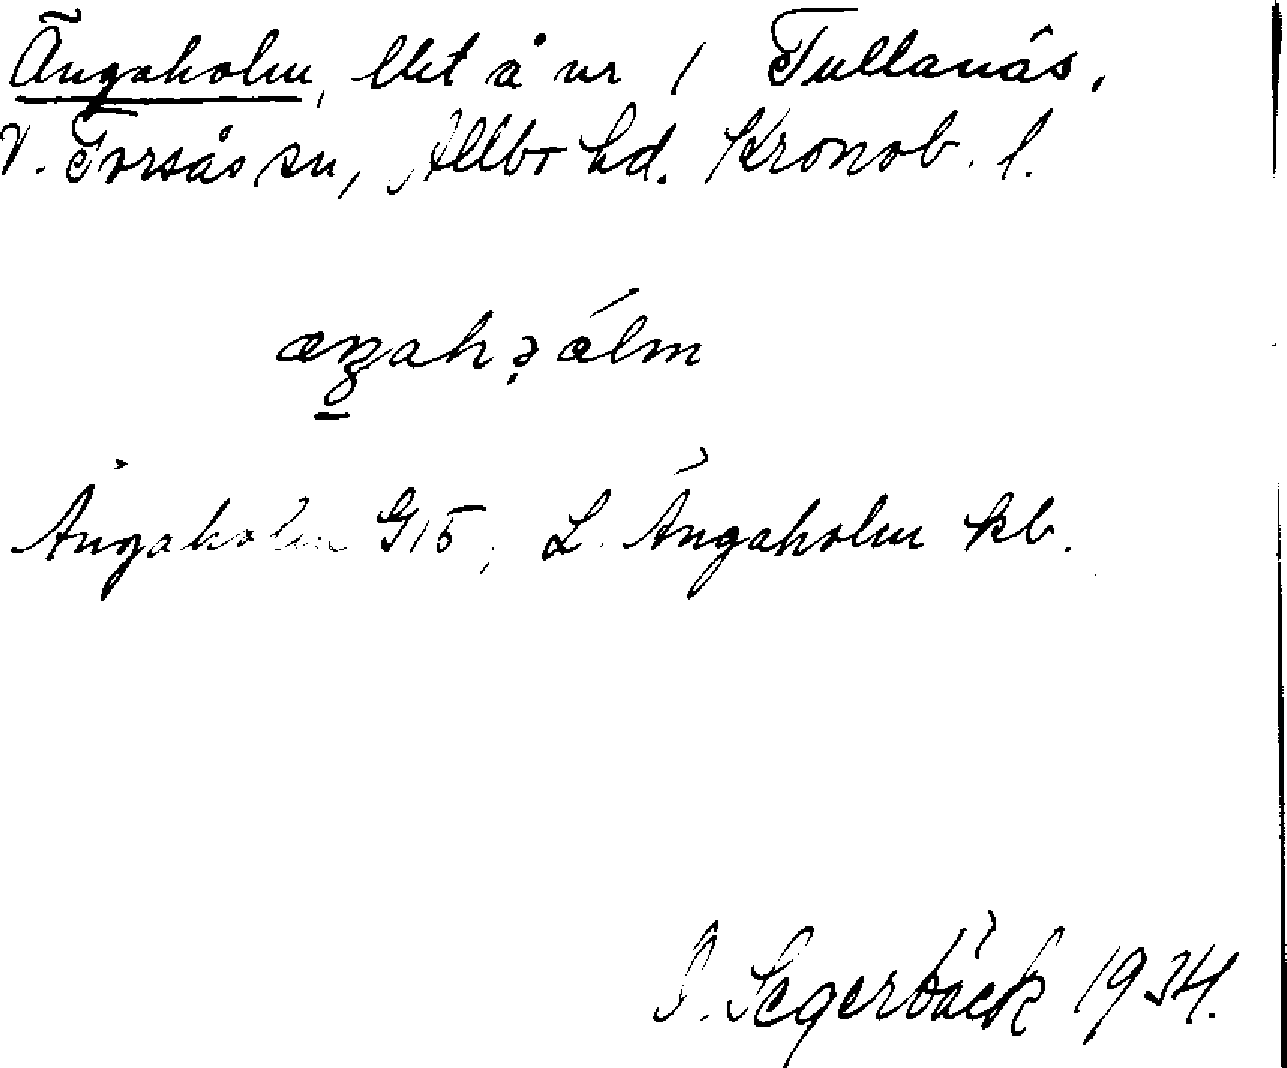 Ängaholm, lht å nr 1 Tullanäs,
V. Torsås sn, Allbo hd. Kronob. l.
Ängaholm G15, L. Ängaholm kb.
I. Segerbäck 1934.